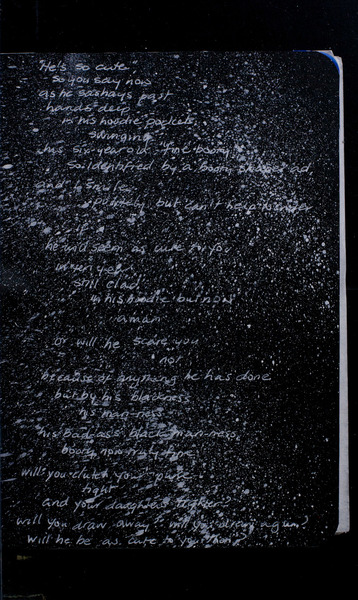 "He's so cute"
so you say now
as he sashays past
hands deep
in his hoodie pockets,
swinging
his six-year old "fine booty"
So identified by a booty shaped ad,
and I smile
politely but can't help wonder
if
he will seem as cute to you
when yet
still clad
in his hoodie but now
a man
or will he scare you
not
because of anything he has done
but by his blackness
his man-ness
his bad-ass black man-ness,
booty now truly fine
will you clutch your purse
tight
and your daughters tighter?
will you draw away? will you draw a gun?
will he be as cute to you then?